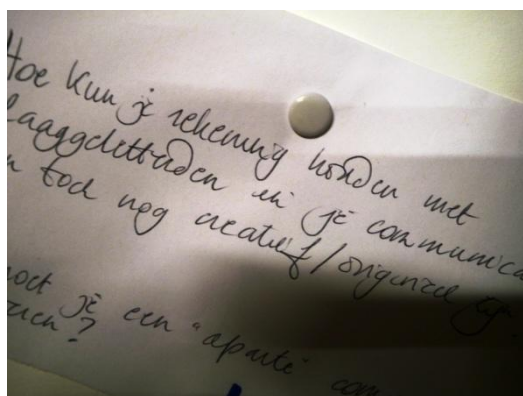 Hoe kun je rekening houden met
laaggeletterden in je communica
en toch nog creatief/origineel zijn.
moet je een "aparte" com
?